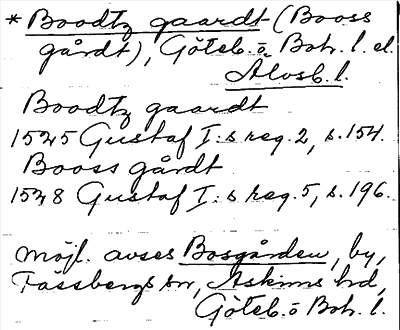 * Boodtz gaardt (Booss
gårdt), Göteb. o. Boh. l. el.
Älvsb. l.
Boodtz gaardt
1525 Gustaf I:s reg. 2, s. 154.
Booss gårdt
1528 Gustaf I:s reg. 5, s. 196.
möjl. avses Bosgården, by,
Fässbergs sn, Askims hd,
Göteb. o Boh. l.